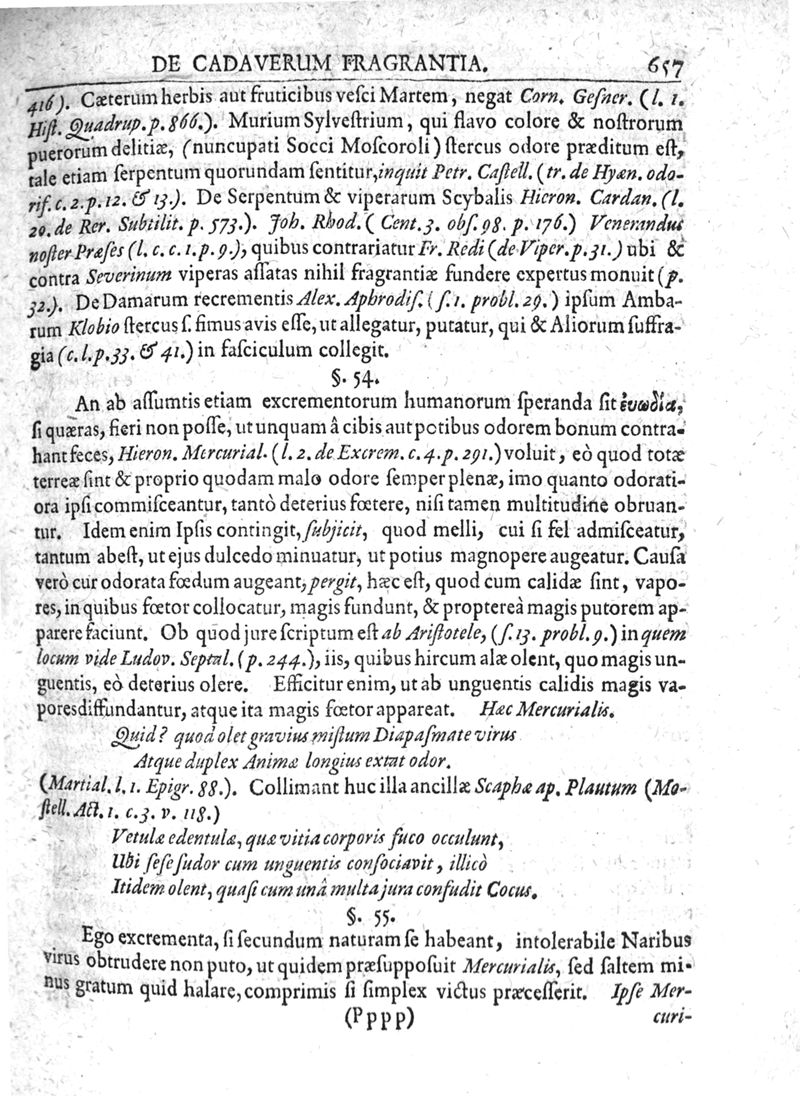 DE CADAVERUM FRAGRANTIA. 657
416). Cæterum herbis aut fruticibus veſci Martem, negat Corn. Geſner. (l. 1.
Hiſt. Quadrup. p. 866.). Murium Sylveſtrium, qui flavo colore & noſtrorum
puerorum delitiæ, (nuncupati Socci Moſcoroli) ſtercus odore præditum eſt,
tale etiam ſerpentum quorundam ſentitur, inquit Petr. Caſtell. (tr. de Hyæn. odo-
rif. c. 2. p. 12. & 13.). De Serpentum & viperarum Scybalis Hieron. Cardan. (l.
20. de Rer. Subtilit. p. 573.). Joh. Rhod. (Cent. 3. obſ. 98. p. 176.) Venerandus
noſter Præſes (l. c. c. 1. p. 9.), quibus contrariatur Fr. Redi (de Viper. p. 31.) ubi &
contra Severinum viperas aſſatas nihil fragrantiæ fundere expertus monuit (p.
32.). De Damarum recrementis Alex. Aphrodiſ. (ſ. 1. probl. 29.) ipſum Amba-
rum Klobio ſtercus ſ. fimus avis eſſe, ut allegatur, putatur, qui & Aliorum ſuffra-
gia (c. l. p. 33. & 41.) in faſciculum collegit.
§. 54.
An ab aſſumtis etiam excrementorum humanorum ſperanda ſit ἐυωδία,
ſi quæras, fieri non poſſe, ut unquam â cibis aut potibus odorem bonum contra-
hant feces, Hieron. Mercurial. (l. 2. de Excrem. c. 4. p. 291.) voluit, eò quod totæ
terreæ ſint & proprio quodam malo odore ſemper plenæ, imo quanto odorati-
ora ipſi commiſceantur, tantò deterius fœtere, niſi tamen multitudine obruan-
tur. Idem enim Ipſis contingit, ſubjicit, quod melli, cui ſi fel admiſceatur,
tantum abeſt, ut ejus dulcedo minuatur, ut potius magnopere augeatur. Cauſa
verò cur odorata fœdum augeant, pergit, hæc eſt, quod cum calidæ ſint, vapo-
res, in quibus fœtor collocatur, magis fundunt, & proptereà magis putorem ap-
parere faciunt. Ob quod jure ſcriptum eſt ab Ariſtotele, (ſ. 13. probl. 9.) in quem
locum vide Ludov. Septal. (p. 244.), iis, quibus hircum alæ olent, quo magis un-
guentis, eò deterius olere. Efficitur enim, ut ab unguentis calidis magis va-
poresdiffundantur, atque ita magis fœtor appareat. Hæc Mercurialis.
Quid? quod olet gravius miſtum Diapaſmate virus
Atque duplex Animæ longius extat odor.
(Martial. l. 1. Epigr. 88.). Collimant huc illa ancillæ Scaphæ ap. Plautum (Mo-
ſtell. Act. 1. c. 3. v. 118.)
Vetulæ edentulæ, quæ vitia corporis fuco occulunt,
Ubi ſeſe ſudor cum unguentis conſociavit, illicò
Itidem olent, quaſi cum unâ multa jura confudit Cocus.
§. 55.
Ego excrementa, ſi ſecundum naturam ſe habeant, intolerabile Naribus
virus obtrudere non puto, ut quidem præſuppoſuit Mercurialis, ſed ſaltem mi-
nus gratum quid halare, comprimis ſi ſimplex victus præceſſerit. Ipſe Mer-
(Pppp) curi-